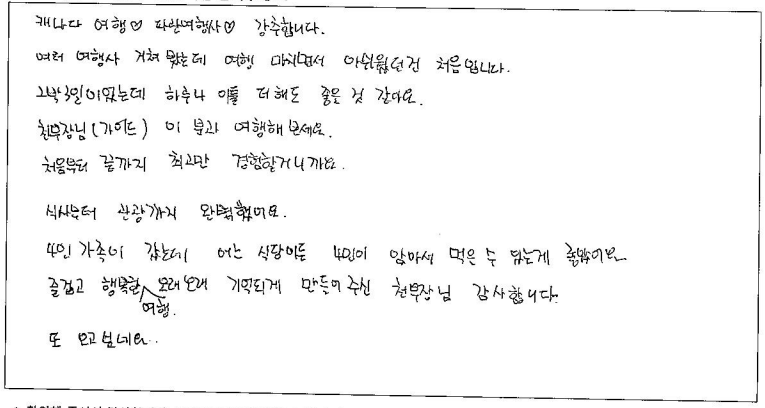 캐나다 여행♡ 파란여행사♡ 강추합니다.
여러 여행사 거쳐 봤는데 여행 마치면서 아쉬웠던건 처음입니다.
2박3일이였는데 하루나 이틀 더 해도 좋을 것 같아요.
천부장님(가이드) 이 분과 여행해 보세요.
처음부터 끝까지 최고만 경험할거니까요.
식사부터 관광까지 완벽했어요.
4인 가족이 갔는데 어느 식당이든 4인이 앉아서 먹을 수 있는게 좋았어요.
즐겁고 행복한 오래오래 기억되게 만들어주신 천부장님 감사합니다.
여행.
또 오고싶네요..